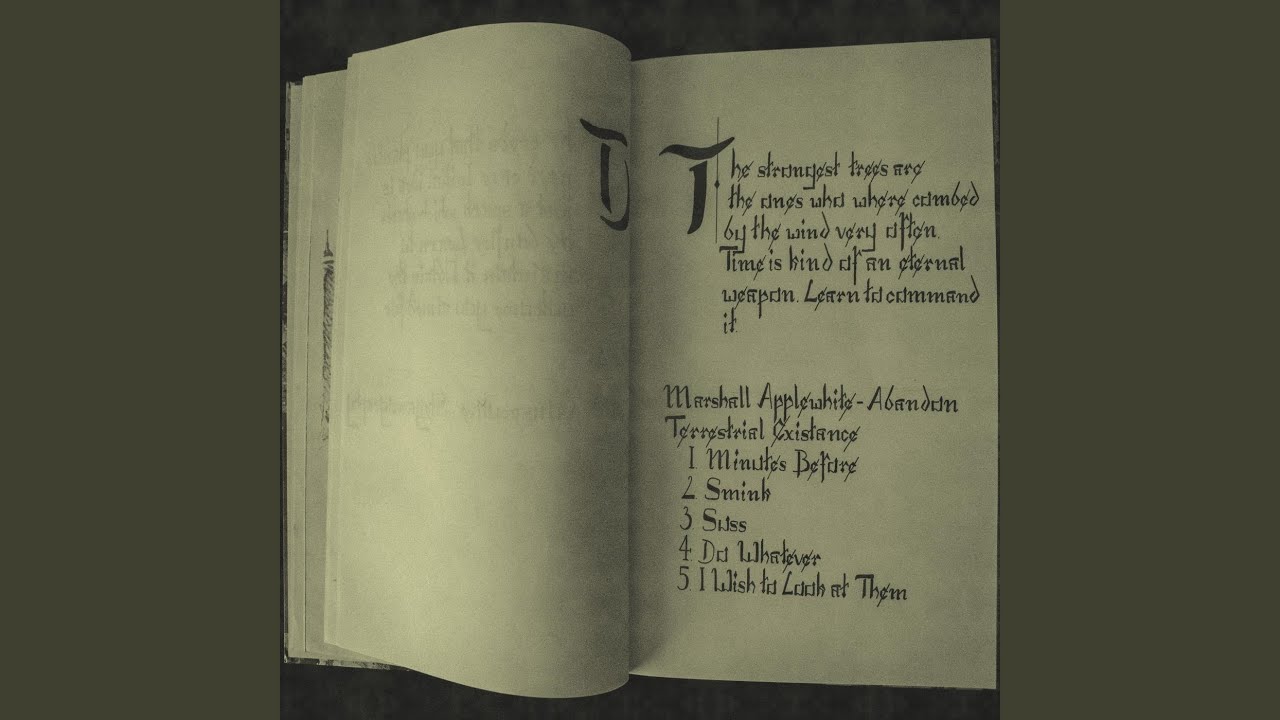 The strongest trees are
the ones who where combed
by the wind very often.
Time is kind of an eternal
weapon. Learn to command
it.
Marshall Applewhite - Abandon
Terrestrial Existance
1. Minutes Before
2. Smink
3. Suss
4. Do Whatever
5. I Wish to Look at Them